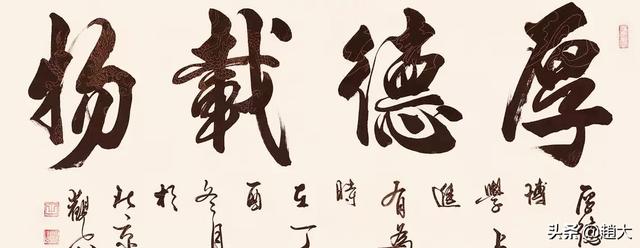 厚德載物
厚德
博
學上
進
有為
時
在丁
酉
冬月
於
北京
头条 @趙大